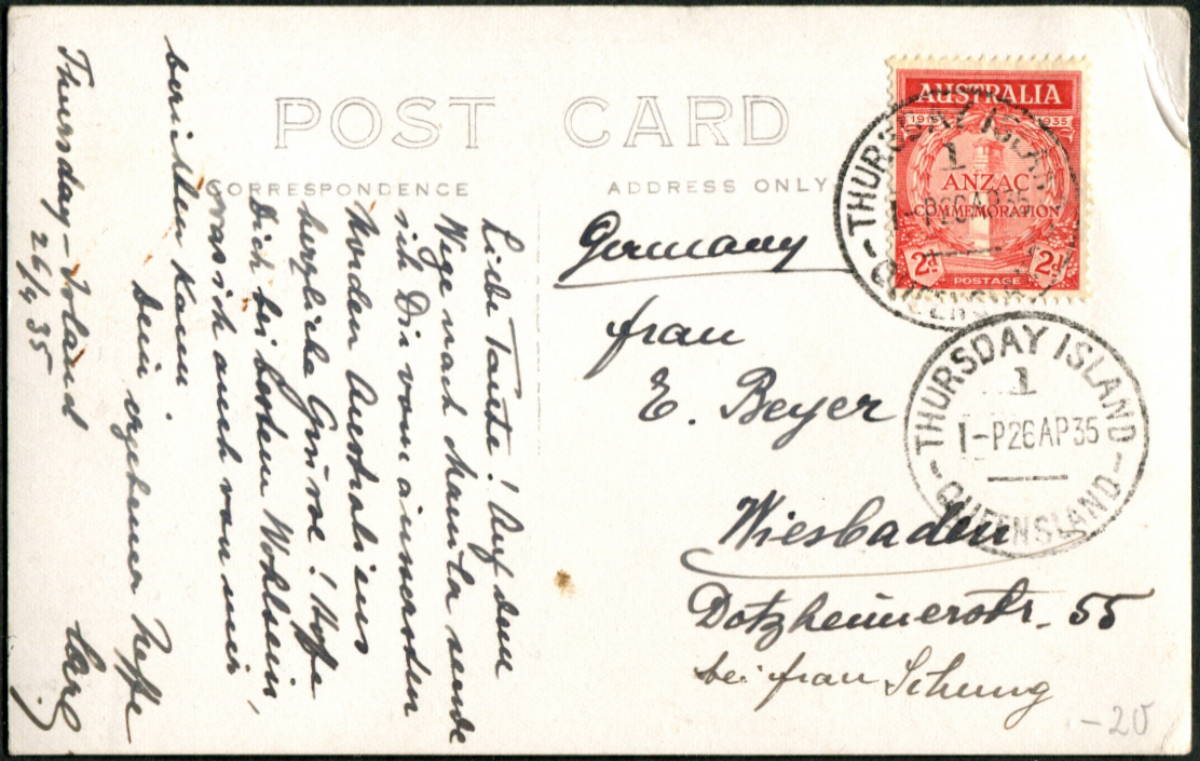 POST CARD
CORRESPONDENCE
ADDRESS ONLY
Liebe Tante! Auf dem
Wege nach Manila sende
ich Dir vom äussersten
Norden Australiens
herzliche Grüsse! Hoffe
Dich bei bestem Wohlsein,
was ich auch von mir
berichten kann.
Dein ergebener Neffe
Carl
Thursday-Island
26/4 35
Germany
Frau
E. Beyer
Wiesbaden
Dotzheimerstr. 55
bei Frau Schung
AUSTRALIA
1915 1935
ANZAC
COMMEMORATION
2d 2d
POSTAGE
THURSDAY ISLAND
1
1-P26AP35
QUEENSLAND
THURSDAY ISLAND
1
1-P26AP35
QUEENSLAND
-20